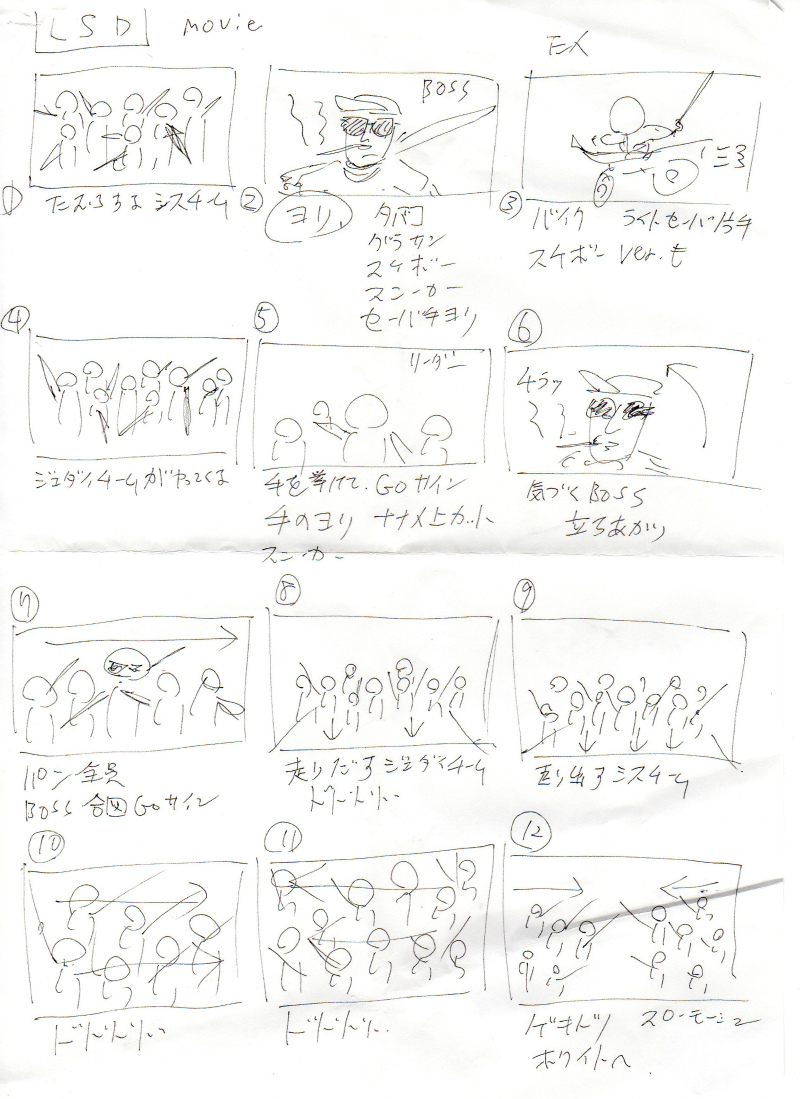 LSD movie
EX
①
たむろするシスチーム
②
BOSS
ヨリ、
タバコ
グラサン
スケボー
スニーカー
セーバ手ヨリ
③
バイク ライトセーバ片手
スケボー ver.も
④
ジェダイチームがやってくる
⑤
リーダー
手を挙げて、GOサイン
手のヨリ ナナメ上カット
スニーカー
⑥
チラッ
気づくBOSS
立ちあがり
⑦
パン 全員
BOSS 合図 GOサイン
⑧
走りだすジェダイチーム
ドドドド…
⑨
走り出すシスチーム
⑩
ドドドド…
⑪
ドドドド…
⑫
ゲキトツ スローモーション
ホワイトへ